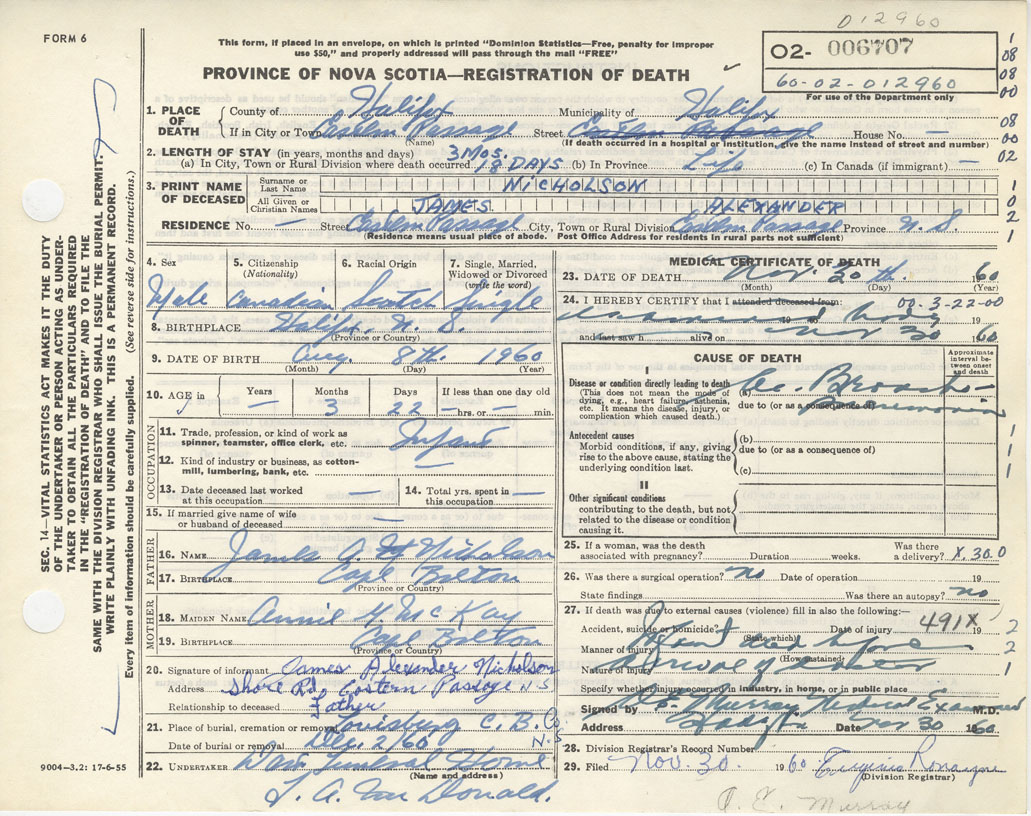 012960
FORM 6
This form, if placed in an envelope, on which is printed "Dominion Statistics—Free, penalty for improper
use $50," and properly addressed will pass through the mail "FREE"
PROVINCE OF NOVA SCOTIA—REGISTRATION OF DEATH
02- 006707
60-02-012960
For use of the Department only
1
08
08
00
08
00
02
1
0
2
1
1. PLACE OF DEATH
County of Halifax Municipality of Halifax
If in City or Town Eastern Passage Street Eastern Passage House No. —
(Name) (If death occurred in a hospital or institution, give the name instead of street and number)
2. LENGTH OF STAY (in years, months and days) 3 Mos.
(a) In City, Town or Rural Division where death occurred 18 DAYS (b) In Province Life (c) In Canada (if immigrant) —
3. PRINT NAME OF DECEASED
Surname or Last Name NICHOLSON
All Given or Christian Names JAMES ALEXANDER
RESIDENCE No. — Street Eastern Passage City, Town or Rural Division Eastern Passage Province N. S.
(Residence means usual place of abode. Post Office Address for residents in rural parts not sufficient)
4. Sex
Male
5. Citizenship
(Nationality)
Canadian
6. Racial Origin
Scotch
7. Single, Married,
Widowed or Divorced
(write the word)
Single
8. BIRTHPLACE Halifax, N. S.
(Province or Country)
9. DATE OF BIRTH Aug. 8th. 1960
(Month) (Day) (Year)
10. AGE in
Years —
Months 3
Days 22
If less than one day old
— hrs. or — min.
OCCUPATION
11. Trade, profession, or kind of work as
spinner, teamster, office clerk, etc. Infant
12. Kind of industry or business, as cotton-
mill, lumbering, bank, etc. —
13. Date deceased last worked
at this occupation —
14. Total yrs. spent in
this occupation —
15. If married give name of wife
or husband of deceased —
FATHER
16. NAME James A. Nicholson
17. BIRTHPLACE Cape Breton
(Province or Country)
MOTHER
18. MAIDEN NAME Annie McKay
19. BIRTHPLACE Cape Breton
(Province or Country)
20. Signature of informant James Alexander Nicholson
Address Shore Rd Eastern Passage N-S
Relationship to deceased Father
21. Place of burial, cremation or removal Louisburg C. B. Co
Date of burial or removal Dec. 2/60 N-S
22. UNDERTAKER Funeral Home
(Name and address)
Donald.
9004—3.2: 17-6-55
MEDICAL CERTIFICATE OF DEATH
23. DATE OF DEATH Nov. 30th. 1960
(Month) (Day) (Year)
24. I HEREBY CERTIFY that I attended deceased from: 00-3-22-00
19 19
and last saw h alive on Nov 30 1960
CAUSE OF DEATH
Approximate
interval be-
tween onset
and death
I
Disease or condition directly leading to death
(This does not mean the mode of
dying, e.g., heart failure, asthenia,
etc. It means the disease, injury, or
complication which caused death.)
(a) Ac. Broncho-
due to (or as a consequence of) pneumonia
Antecedent causes
Morbid conditions, if any, giving
rise to the above cause, stating the
underlying condition last.
(b)
due to (or as a consequence of)
(c)
II
Other significant conditions
contributing to the death, but not
related to the disease or condition
causing it.
1
1
1
25. If a woman, was the death
associated with pregnancy? Duration weeks. Was there
a delivery? X.30.0
26. Was there a surgical operation? no Date of operation 19
State findings Was there an autopsy? no
27. If death was due to external causes (violence) fill in also the following:—
Accident, suicide or homicide? Date of injury 491X 19
(State which)
Manner of injury Found dead before
(How sustained)
Nature of injury arrival of doctor
2
2
1
Specify whether injury occurred in industry, in home, or in public place
Signed by Murray Medical Examiner M.D.
Address Halifax Date Nov 30 1960
28. Division Registrar's Record Number
29. Filed Nov. 30. 1960
(Division Registrar)
Murray
SEC. 14—VITAL STATISTICS ACT MAKES IT THE DUTY
OF THE UNDERTAKER OR PERSON ACTING AS UNDER-
TAKER TO OBTAIN ALL THE PARTICULARS REQUIRED
IN THE "REGISTRATION OF DEATH" AND TO FILE THE
SAME WITH THE DIVISION REGISTRAR WHO SHALL ISSUE THE BURIAL PERMIT.
WRITE PLAINLY WITH UNFADING INK. THIS IS A PERMANENT RECORD.
Every item of information should be carefully supplied. (See reverse side for instructions.)